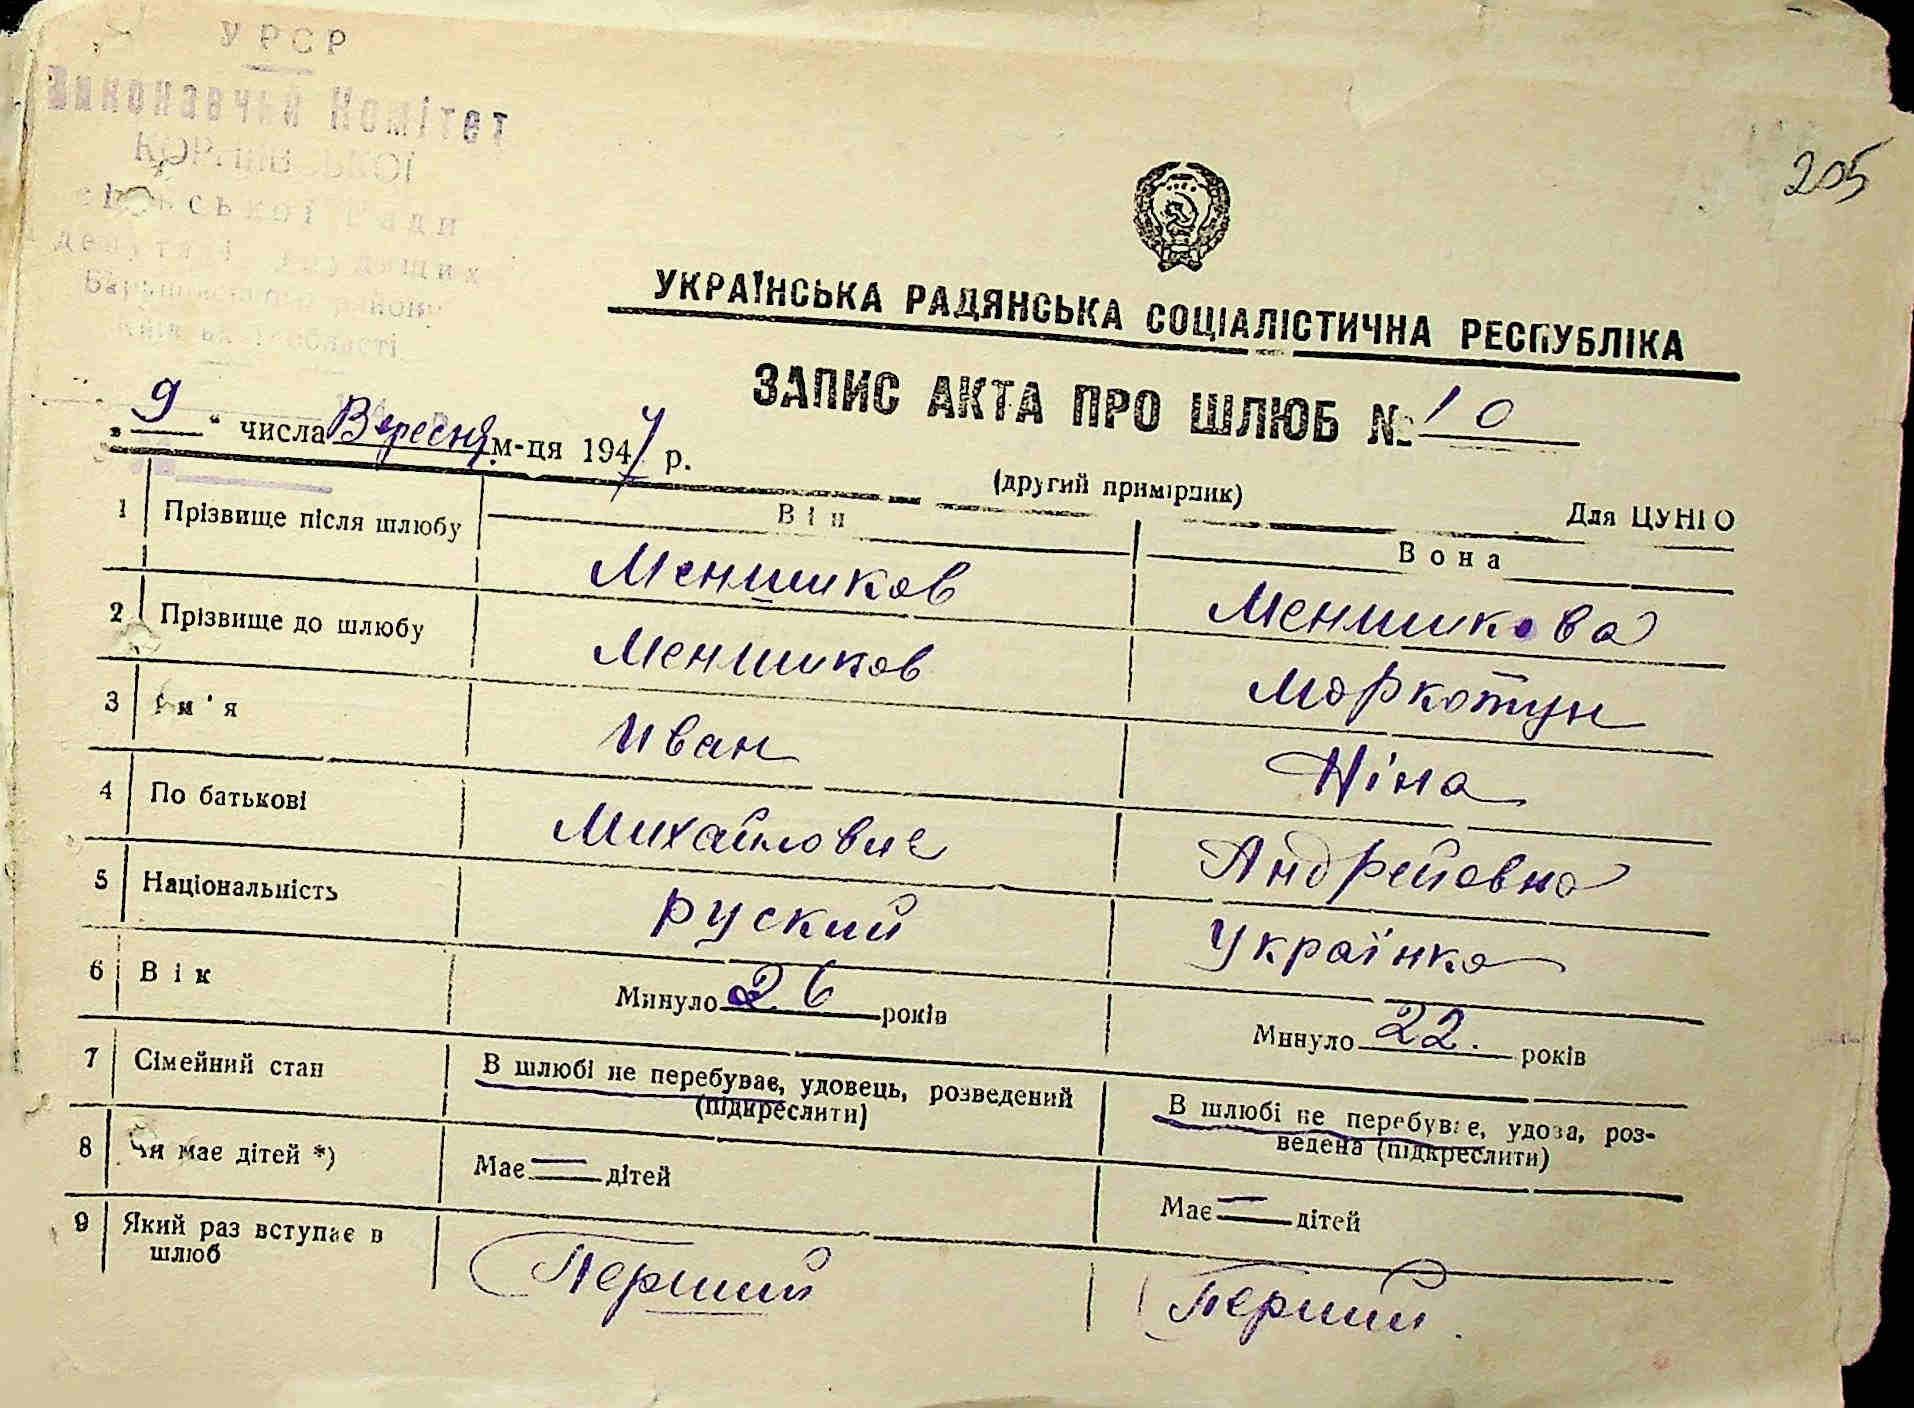 УРСР
Виконавчий Комітет
сільської Ради
депутатів трудящих
району
області
205
УКРАЇНСЬКА РАДЯНСЬКА СОЦІАЛІСТИЧНА РЕСПУБЛІКА
ЗАПИС АКТА ПРО ШЛЮБ № 10
„ 9 “ числа Вересня м-ця 1947 р.
(другий примірник)
Для ЦУНГО
Він Вона
1 Прізвище після шлюбу Меншиков Меншикова
2 Прізвище до шлюбу Меншиков Моркотун
3 Ім'я Иван Ніна
4 По батькові Михайлович Андрейовна
5 Національність руский Українка
6 Вік Минуло 26 років Минуло 22. років
7 Сімейний стан В шлюбі не перебуває, удовець, розведений (підкреслити) В шлюбі не перебуває, удова, роз-
ведена (підкреслити)
8 Чи має дітей *) Має — дітей Має — дітей
9 Який раз вступає в шлюб Перший Перший